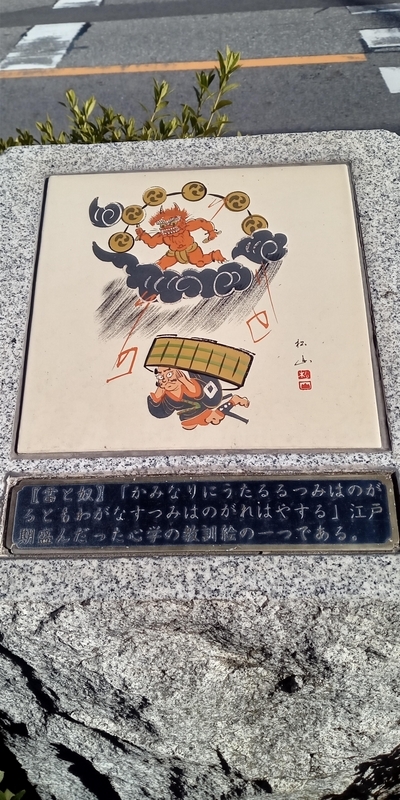 松山
【雷と奴】「かみなりにうたるるつみはのが
るともわがなすつみはのがれはやする」江戸
期盛んだった心学の教訓絵の一つである。